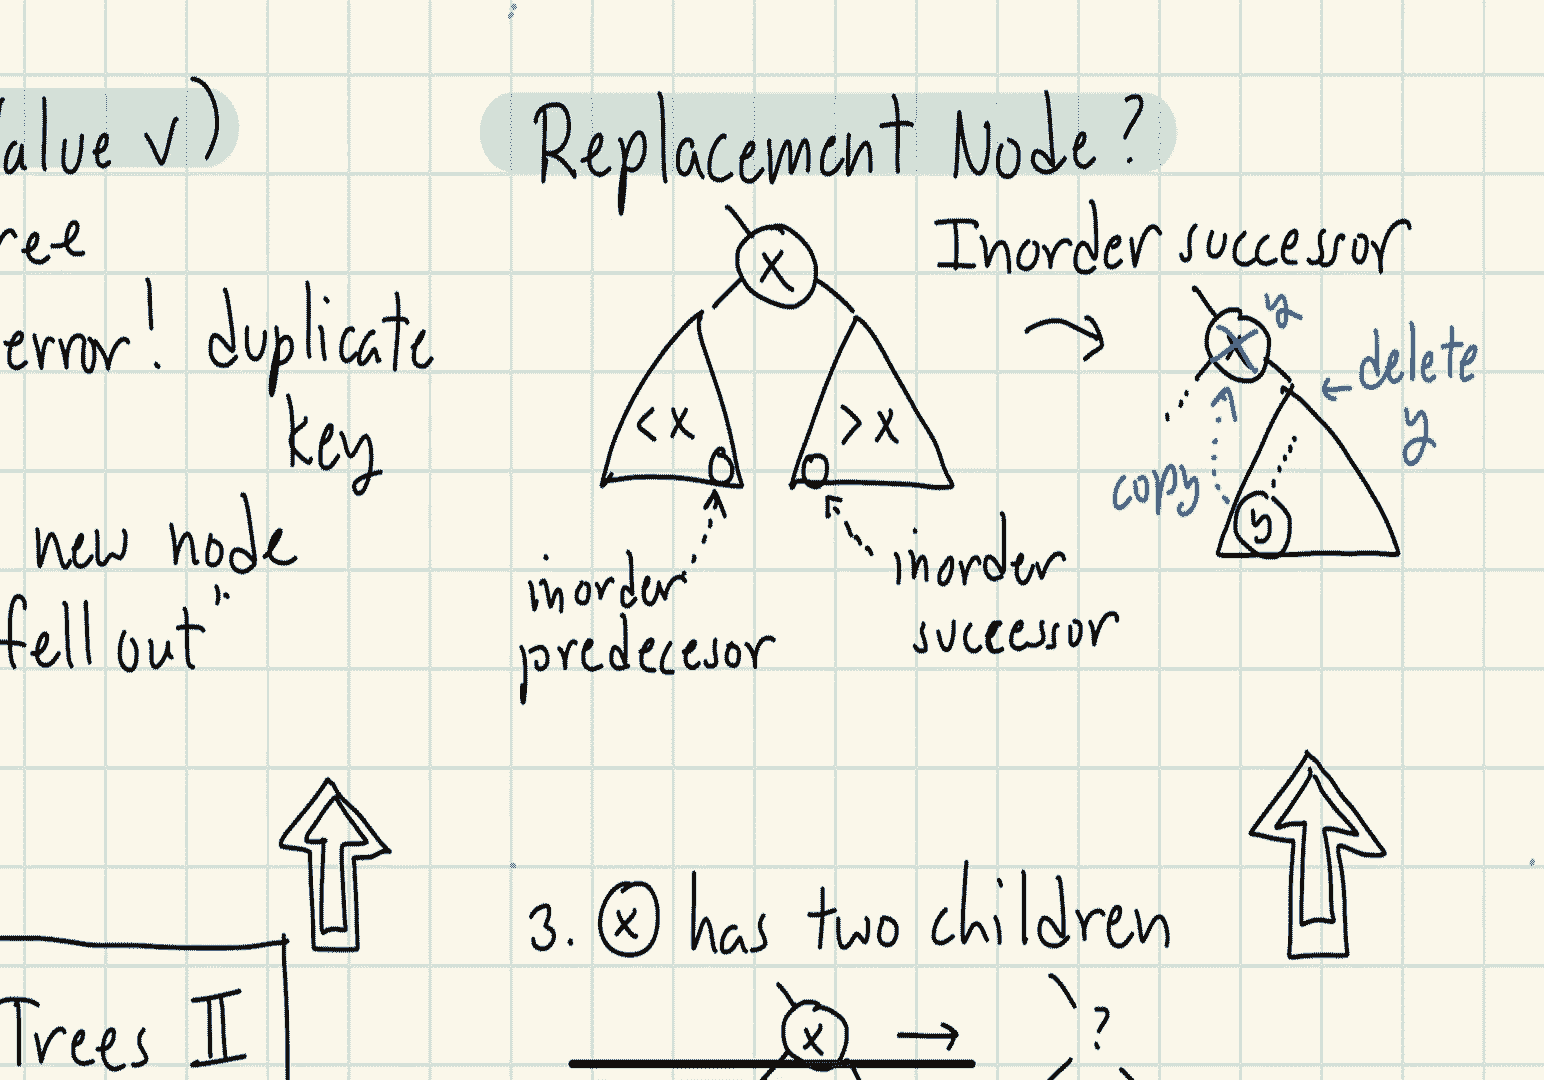 alue v)
ree
error! duplicate
key
new node
fell out"
Trees II
Replacement Node?
x
< x
> x
inorder
predecesor
inorder
successor
Inorder successor
x y
← delete
y
copy
y
3. x has two children
x → ?